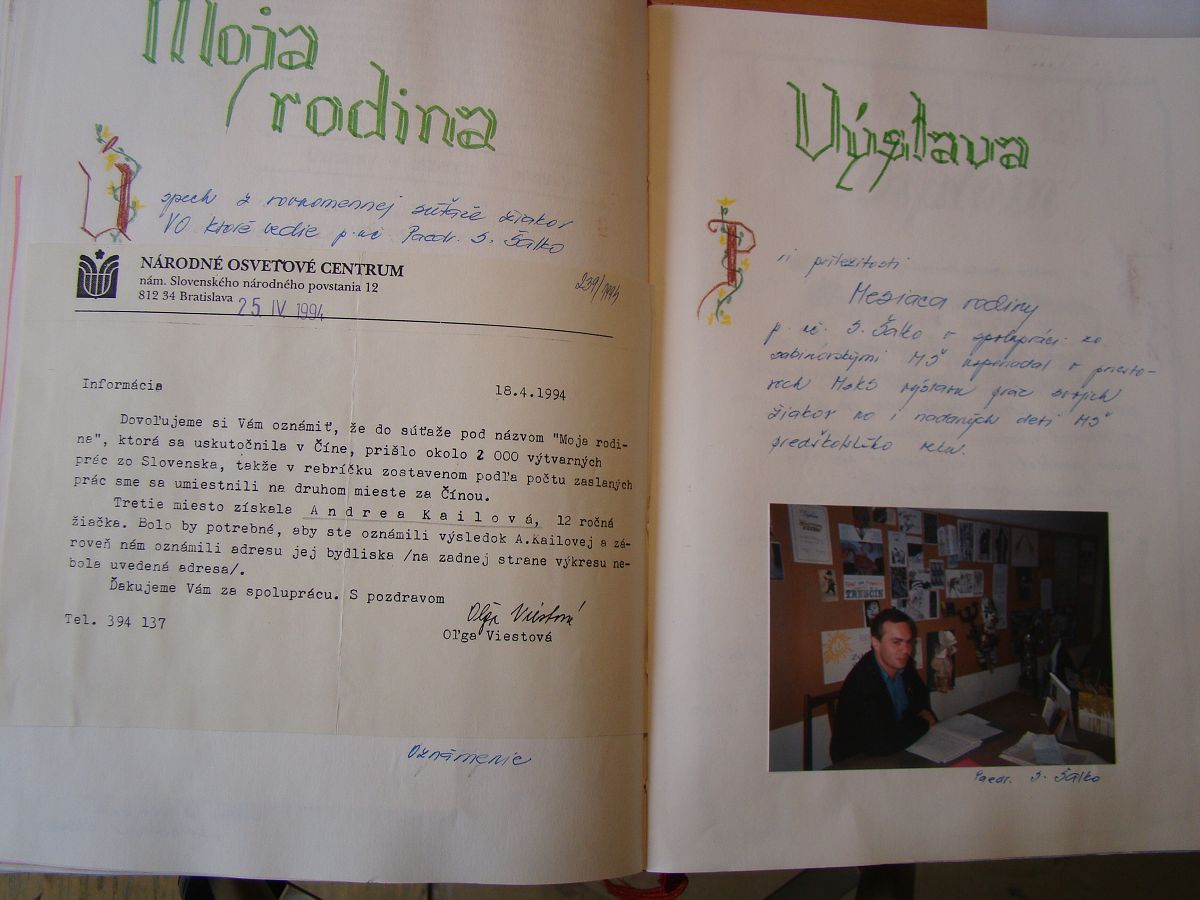 Moja
rodina
Uspech z rovnomennej súťaže žiakov
VO ktoré vedie p. uč. Paedr. S. Šalko
NÁRODNÉ OSVETOVÉ CENTRUM
nám. Slovenského národného povstania 12
812 34 Bratislava
25 IV. 1994
239/1994
Informácia
18.4.1994
Dovoľujeme si Vám oznámiť, že do súťaže pod názvom "Moja rodi-
na", ktorá sa uskutočnila v Číne, prišlo okolo 2 000 výtvarných
prác zo Slovenska, takže v rebríčku zostavenom podľa počtu zaslaných
prác sme sa umiestnili na druhom mieste za Čínou.
Tretie miesto získala Andrea Kailová, 12 ročná
žiačka. Bolo by potrebné, aby ste oznámili výsledok A.Kailovej a zá-
roveň nám oznámili adresu jej bydliska /na zadnej strane výkresu ne-
bola uvedená adresa/.
Ďakujeme Vám za spoluprácu. S pozdravom
Oľga Viestová
Tel. 394 137
Oľga Viestová
Oznámenie
Výstava
Pri príležitosti
Mesiaca rodiny
p. uč. S. Šalko v spolupráci so
sabinovskými MŠ usporiadal v priesto-
roch MsKS výstavu prác svojich
žiakov no i nadaných detí MŠ
predškolského veku.
TRENČÍN
Paedr. S. Šalko